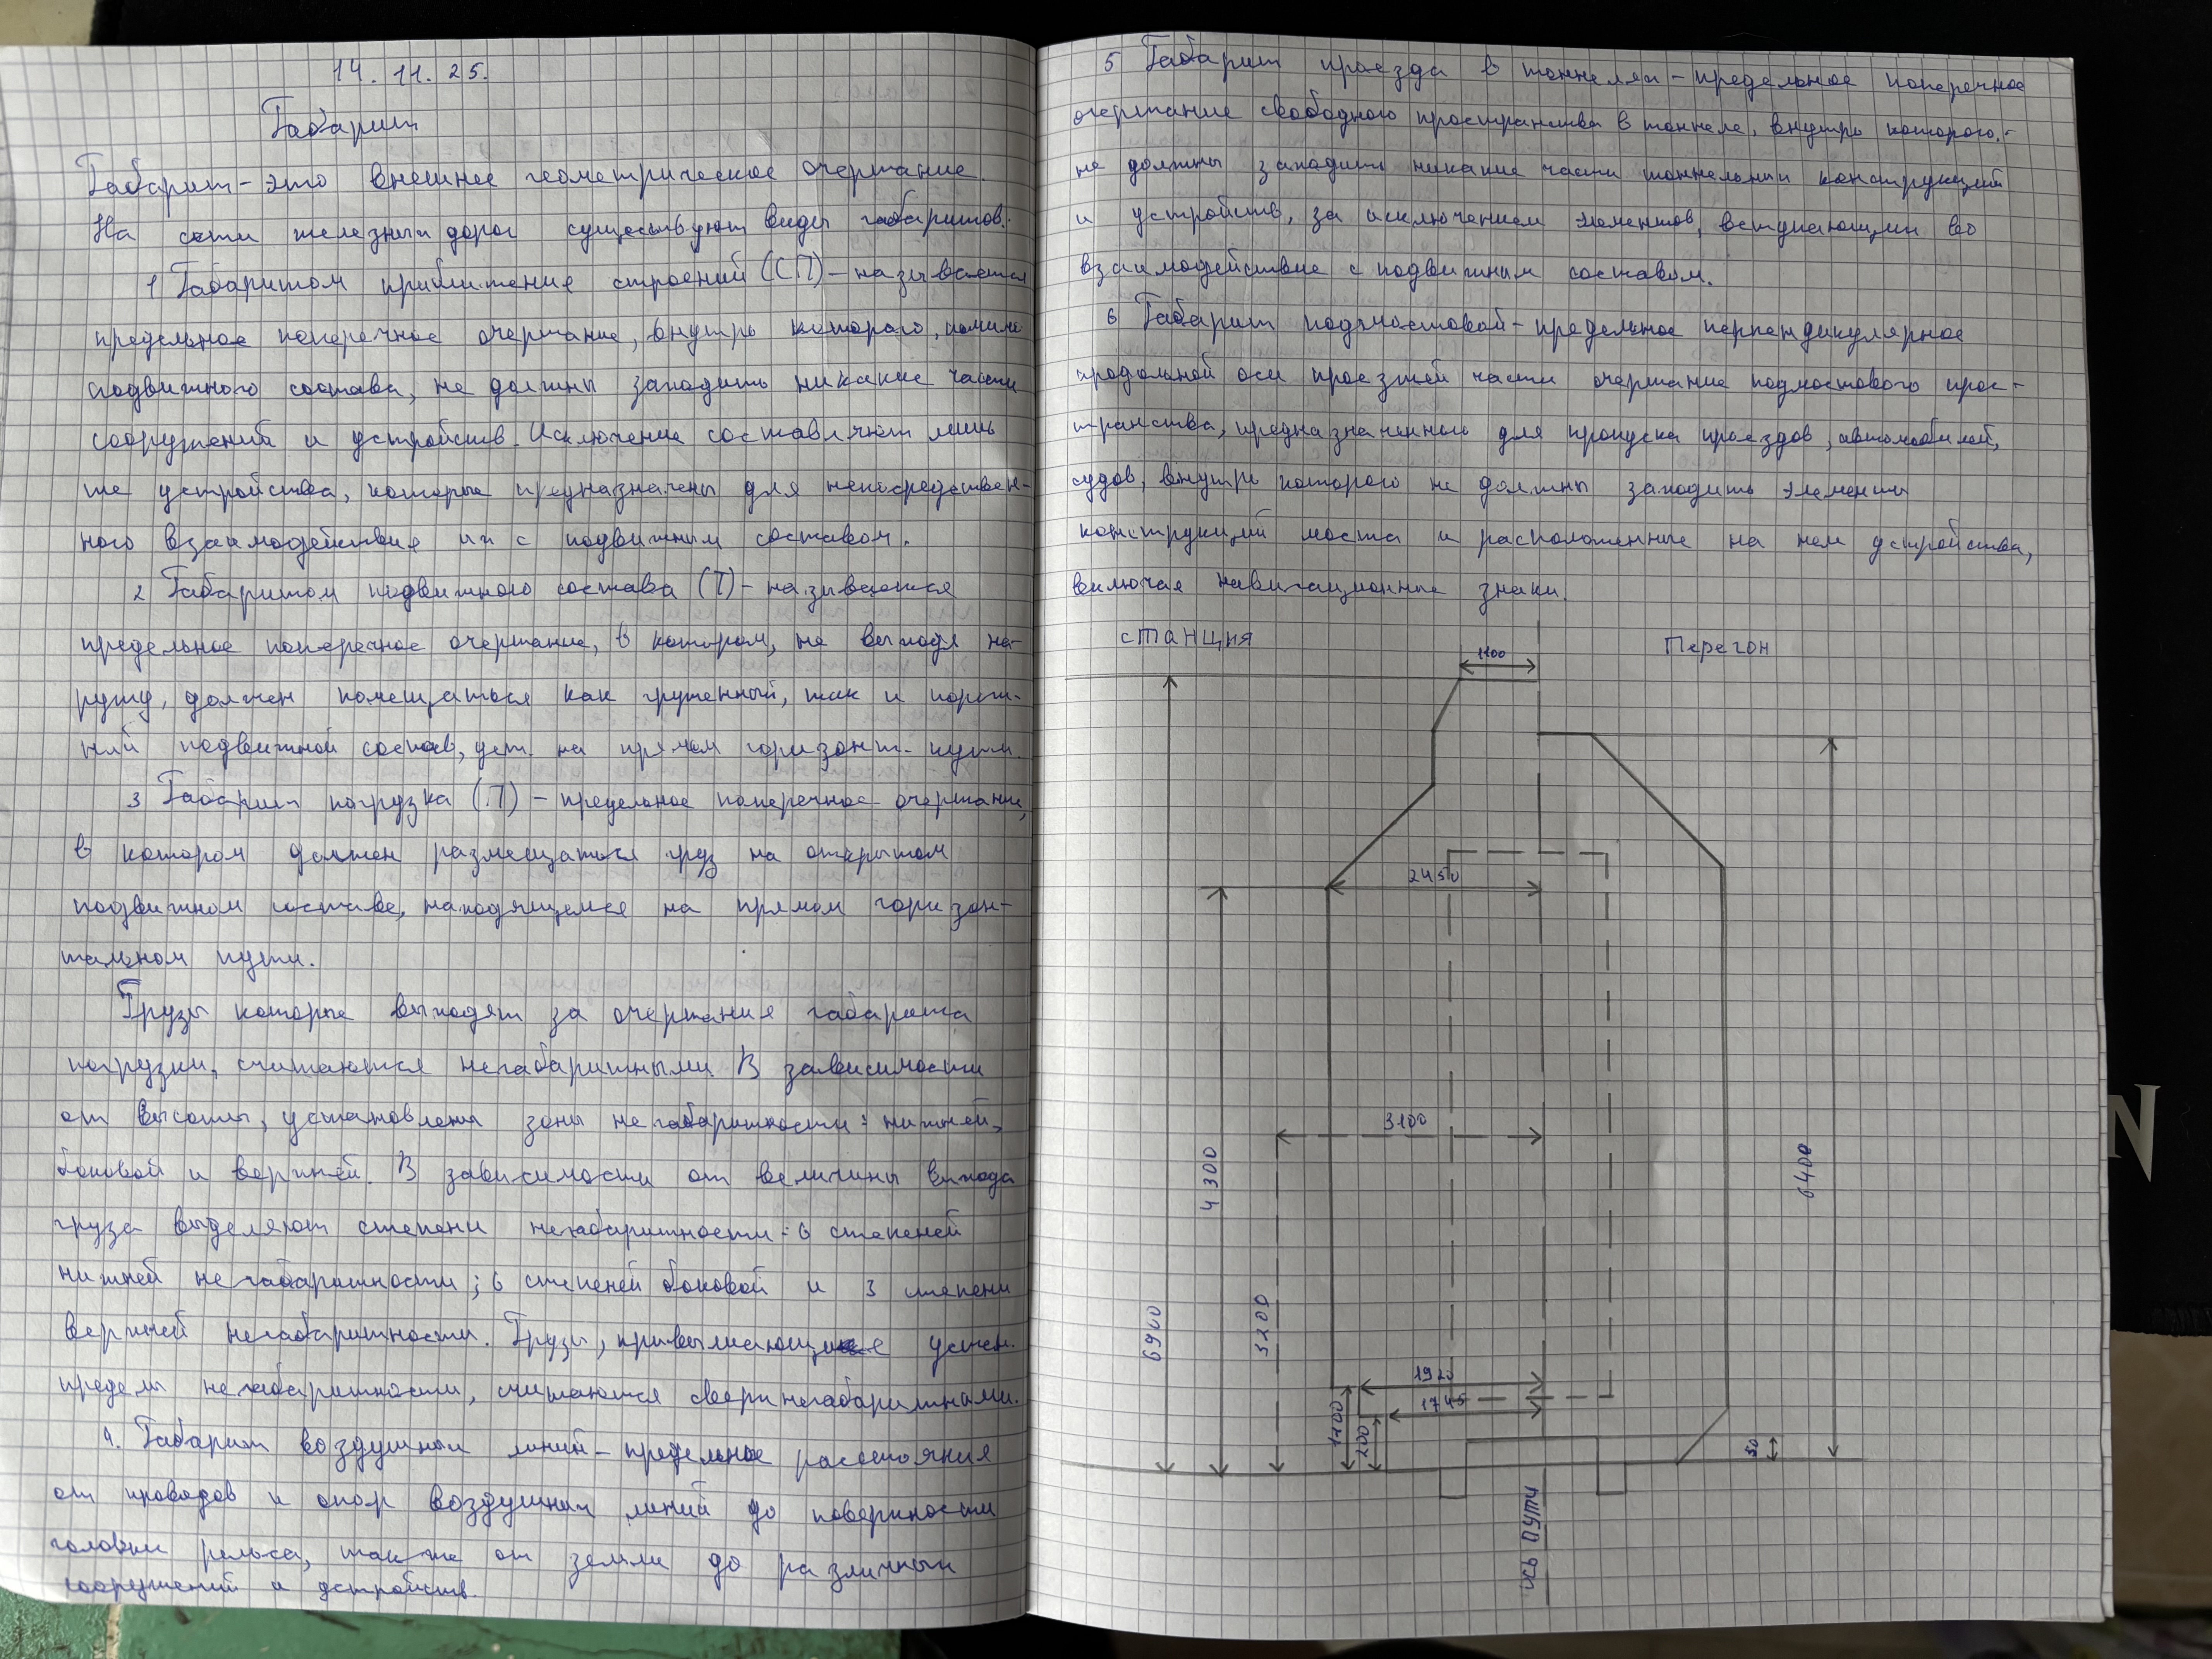 14.11.25.
Габарит
Габарит - это внешнее геометрическое очертание.
На сети железных дорог существуют виды габаритов:
1 Габаритом приближение строений (СП) - называется
предельное поперечное очертание, внутрь которого, помимо
подвижного состава, не должны заходить никакие части
сооружений и устройств. Исключение составляют лишь
те устройства, которые предназначены для непосредствен-
ного взаимодействия их с подвижным составом.
2 Габаритом подвижного состава (Т) - называется
предельное поперечное очертание, в котором, не выходя на-
ружу, должен помещаться как груженный, так и порож-
ний подвижной состав, уст. на прямом горизонт. пути.
3 Габарит погрузка (П) - предельное поперечное очертание,
в котором должен размещаться груз на открытом
подвижном составе, находящемся на прямом горизон-
тальном пути.
Грузы которые выходят за очертания габарита
погрузки, считаются негабаритными. В зависимости
от высоты, установлены зоны негабаритности: нижней,
боковой и верхней. В зависимости от величины выхода
груза выделяют степени негабаритности: 6 степеней
нижней негабаритности; 6 степеней боковой и 3 степени
верхней негабаритности. Грузы, превышающие устан.
пределы негабаритности, считаются сверхнегабаритными.
4. Габарит воздушных линий - предельное расстояния
от проводов и опор воздушных линий до поверхности
головки рельса, также от земли до различных
сооружений и устройств.
5 Габарит проезда в тоннелях - предельное поперечное
очертание свободного пространства в тоннеле, внутрь которого -
не должны заходить никакие части тоннельных конструкций
и устройств, за исключением элементов, вступающих во
взаимодействие с подвижным составом.
6 Габарит подмостовой - предельное перпендикулярное
продольной оси проезжей части очертание подмостового прос-
транства, предназначенного для пропуска проездов, автомобилей,
судов, внутрь которого не должны заходить элементы
конструкций моста и расположенные на нем устройства,
включая навигационные знаки.
станция
Перегон
1100
2450
3100
4300
6400
6900
3200
1920
1745
1200
200
50
ось пути
N